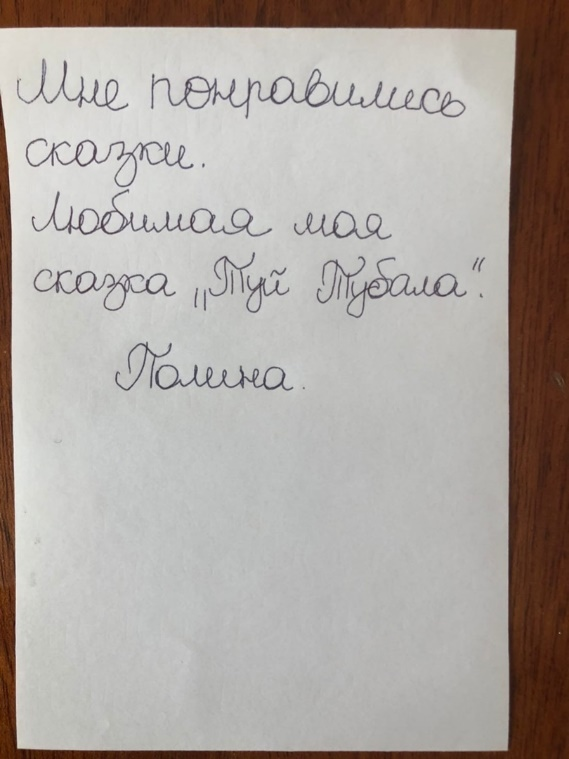 Мне понравились
сказки.
Любимая моя
сказка „Туй Тубала“.
Полина.